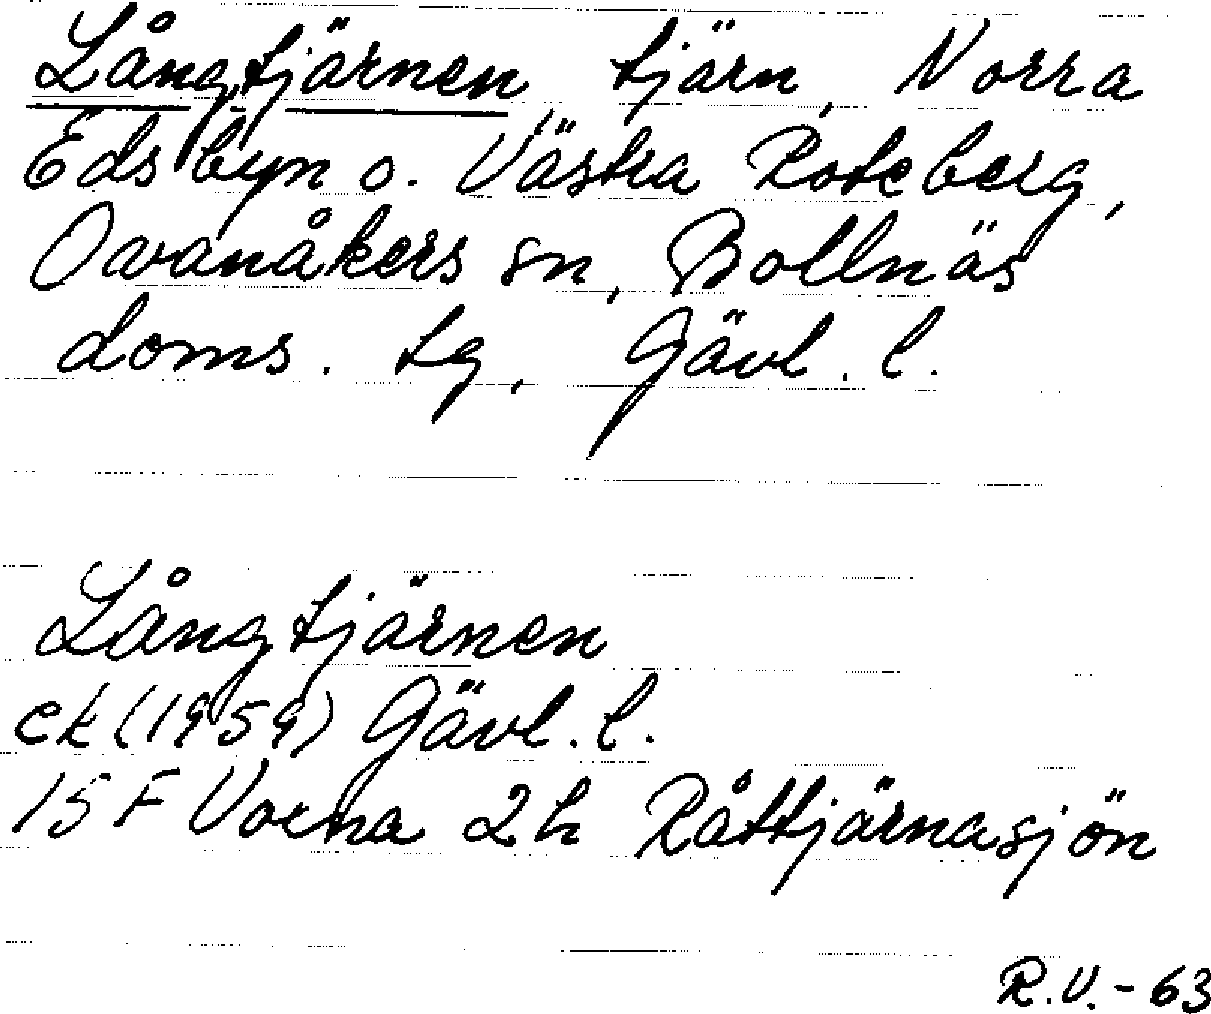 Långtjärnen, tjärn, Norra
Edsbyn o. Västra Roteberg,
Ovanåkers sn, Bollnäs
doms. tg, Gävl. l.
Långtjärnen
ek (1959) Gävl. l.
15 F Voxna 2 h Råttjärnasjön
R.V. - 63